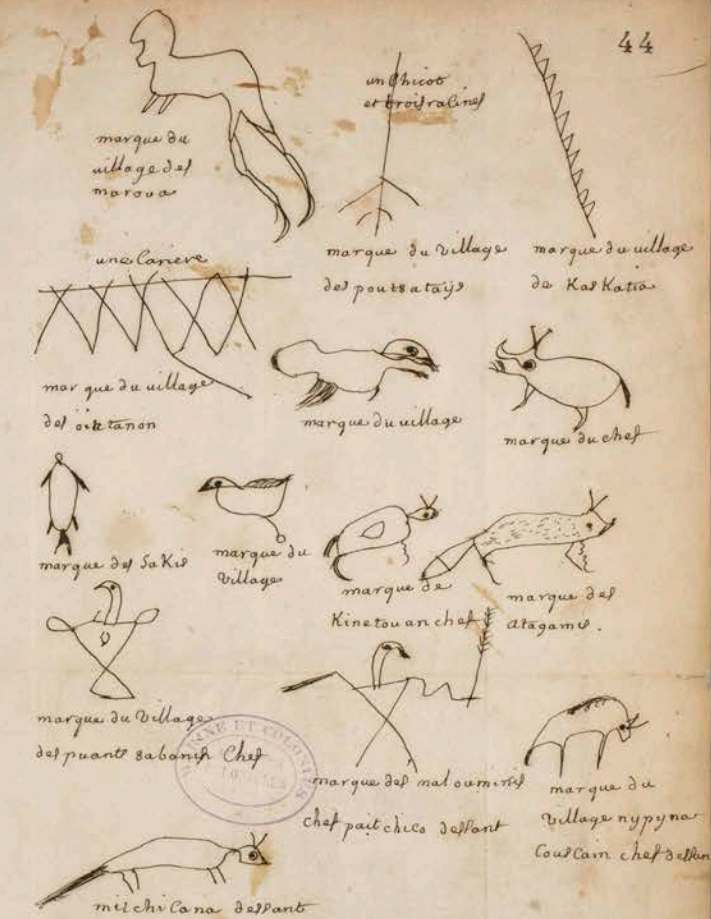 44
un chicot
et trois racines
marque du
village des
maroua
marque du Village
des poutȣatays
marque du village
de Kaskatia
une Cariere
marque du village
des ȣiatanon
marque du village
marque du chef
marque des SaKis
marque du
Village
marque de
Kinetouan chef
marque des
atagamis.
marque du Village
des puants ȣabanis Chef
MARINE ET COLONIES
marque des maloumines
chef paitchico dessant
marque du
Village nypyna
CousCain chef dessan
michiCana dessant